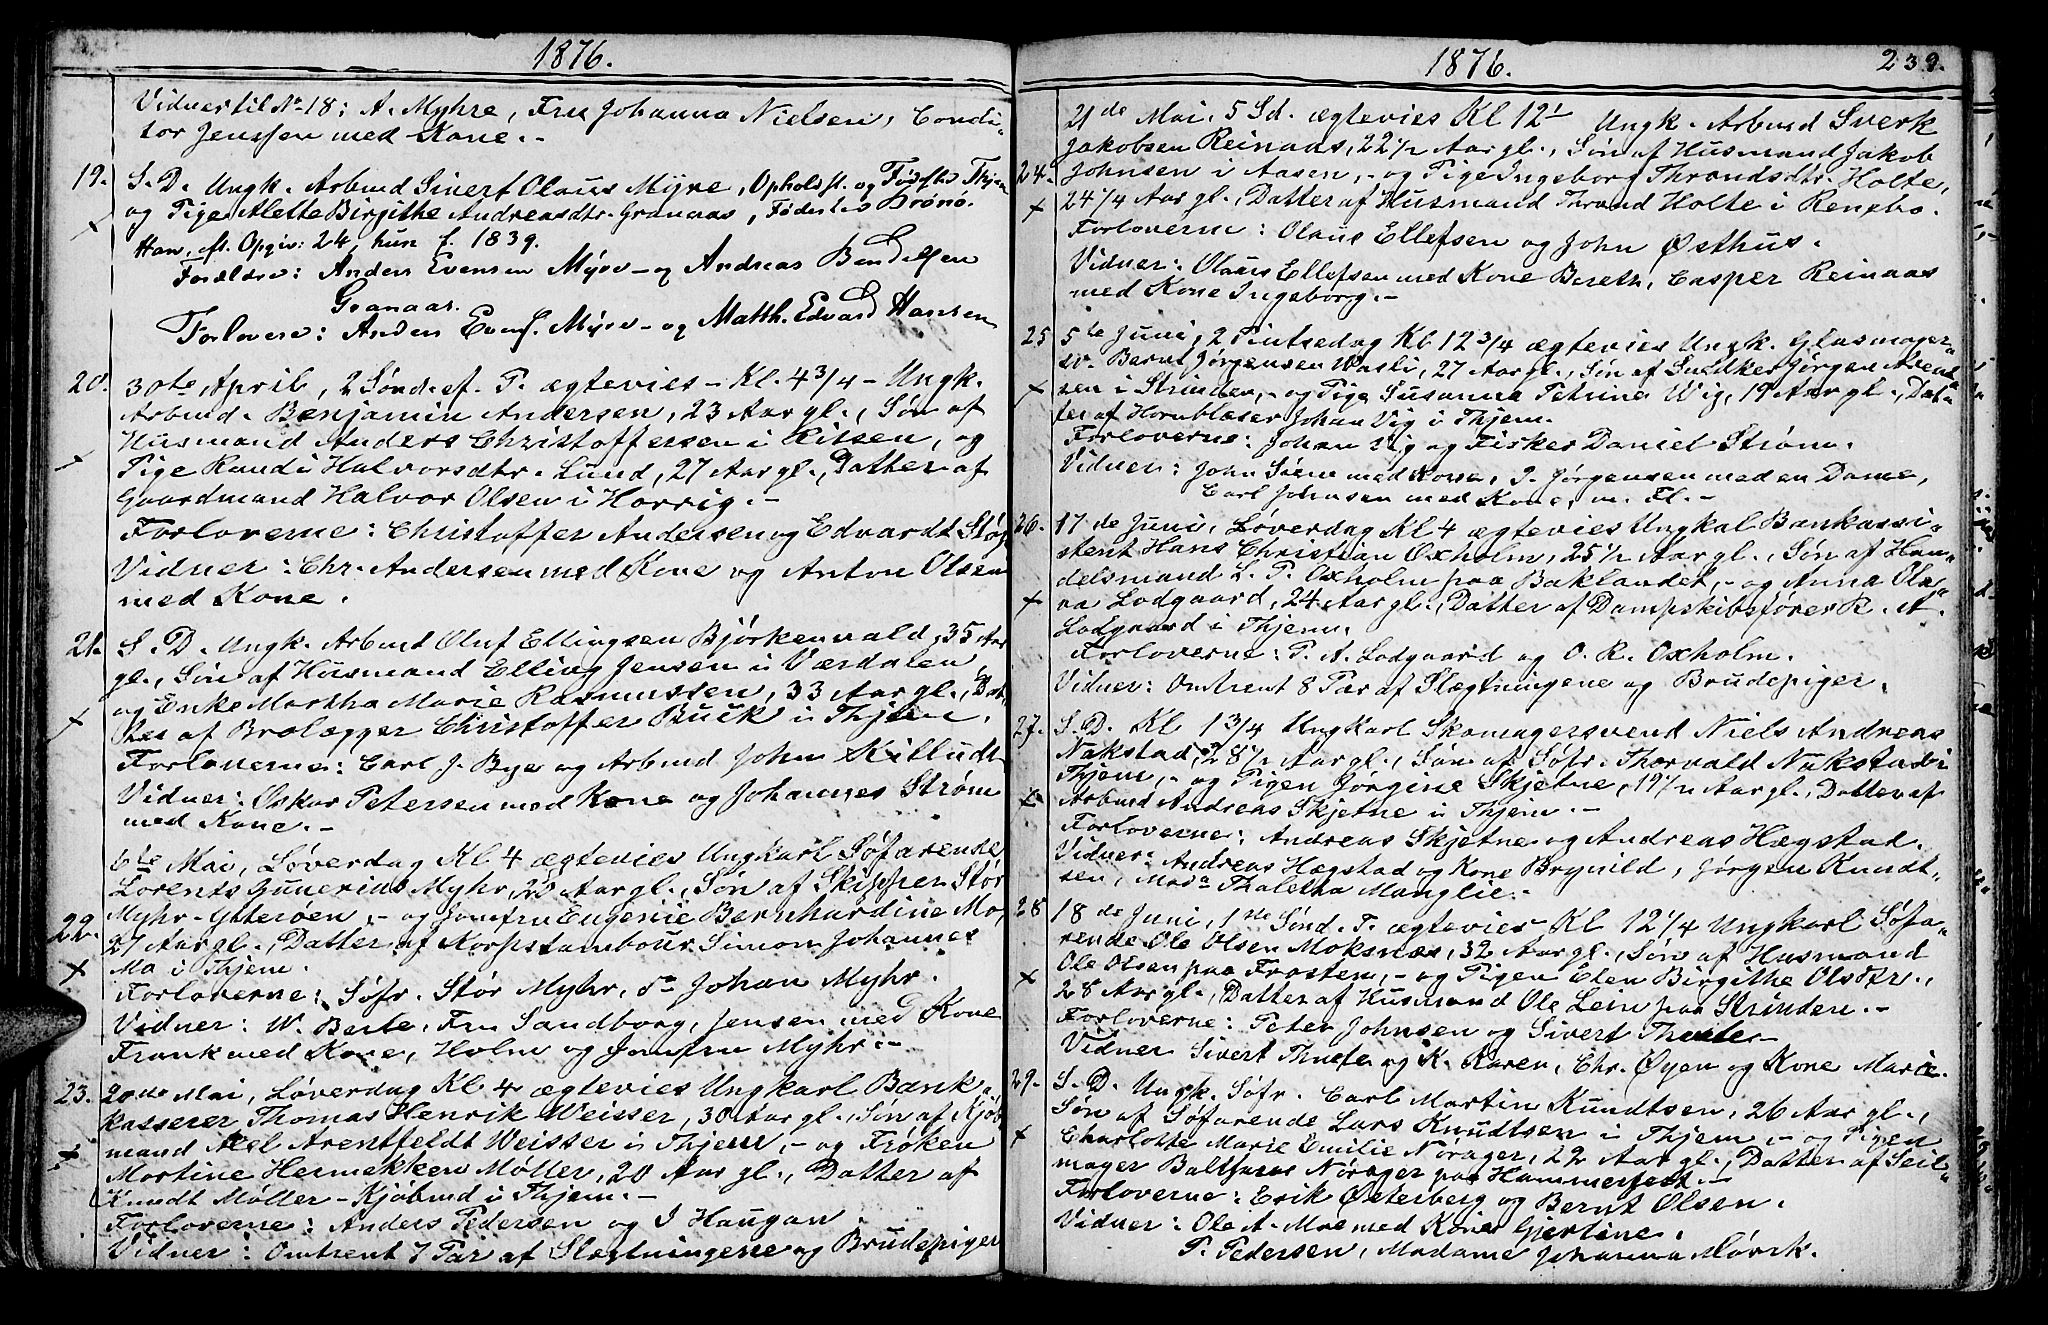 1876.
Vidner til No 18: A. Myhre, Fru Johanna Nielsen, Condi-
tor Jenssen med Kone.-
19. S. D. Ungk. Arbmd Sivert Olaus Myre, Opholdst. og Fødested Thjem
og Pige Alette Birgithe Andreasdtr. Granaas, Fødested Brønø.
Han, efter Opgiv: 24, hun f. 1839.
Forældre: Anders Evensen Myre - og Andreas Bendiksen
Granaas.
Forlovere: Anders Evens. Myre - og Matth. Edvard Hansen
20. 30te April, 2 Sønd. ef. P. ægtevies - Kl. 4 3/4 - Ungk.
Arbmd. Benjamin Andersen, 23 Aar gl., Søn af
Husmand Anders Christoffersen i Ritsen, og
Pige Randi Halvorsdtr. Lund, 27 Aar gl., Datter af
Gaardmand Halvor Olsen i Horrig.-
Forloverne: Christoffer Andersen og Edvardt Støp
Vidner: Chr. Andersen med Kone og Anton Olsen
med Kone.
21. S. D. Ungk. Arbmd Oluf Ellingsen Bjørkenvald, 35 Aar
gl., Søn af Husmand Elling Jensen i Værdalen,
og Enke Martha Marie Rasmussen, 33 Aar gl., Dat-
ter af Brolægger Christoffer Buck i Thjem.
Forloverne: Carl J. Bye og Arbmd John
Vidner: Oskar Petersen med Kone og Johannes Strøm
med Kone.-
6te Mai, Løverdag Kl 4 ægtevies Ungkarl Søfarende
Lorents Gunerius Myhr, 22 Aar gl., Søn af Skipper Stør
22. Myhr - Ytterøen, - og Jomfru Eugenie Bernhardine Mo,
27 Aar gl., Datter af Korpstambour Simon Johannes
Mo i Thjem.
Forloverne: Søfr. Stør Myhr, do Johan Myhr.
Vidner: W. Berle, Fru Sandborg, Jensen med Kone
Frank med Kone, Holm og Jomfru Myhr.-
23. 20de Mai, Løverdag Kl 4 ægtevies Ungkarl Bank-
kasserer Thomas Henrik Weisser, 30 Aar gl., Søn af Kjøb-
mand Axel Arentfeldt Weisser i Thjem, - og Frøken
Martine Hermekken Møller, 20 Aar gl., Datter af
Knudt Møller - Kjøbmd i Thjem.-
Forloverne: Anders Pedersen og I Haugan
Vidner: Omtrent 7 Par af Slægtningene og Brudepiger
1876. 239.
21de Mai, 5 Sd. ægtevies Kl 12 1/ Ungk. Arbmd Sverk
Jakobsen Reinaas, 22 1/2 Aar gl., Søn af Husmand Jakob
24. Johnsen i Aasen, - og Pige Ingeborg Throndsdtr. Holte,
24 1/4 Aar gl., Datter af Husmand Thrond Holte i Renebo.
Forloverne: Olaus Ellefsen og John Østhus.
Vidner: Olaus Ellefsen med Kone Bereth, Casper Reinaas
med Kone Ingeborg.-
25 5te Juni, 2 Pintsedag Kl 12 3/4 ægtevies Ungk. Glasmager-
sv. Bernt Jørgensen Wasli, 27 Aar gl., Søn af Snedker Jørgen Arent-
sen i Strinden, - og Pige Susanna Petrine Wig, 19 Aar gl., Dat-
ter af Hornblæser Johan Vig i Thjem.
Forloverne: Johan Vig og Fisker Daniel Strøm.
Vidner: John med Kone, J. Jørgensen med en Dame,
Carl Johnsen med Kone, m. Fl.-
26. 17de Juni, Løverdag Kl 4 ægtevies Ungkal Bankassi-
stent Hans Christian Oxholm, 25 1/2 Aar gl., Søn af Han-
delsmand L. P. Oxholm paa Baklandet, - og Anna Ola-
va Lodgaard, 24 Aar gl., Datter af Dampskibsfører R. A.
Lodgaard i Thjem.
Forloverne: P. A. Lodgaard og O. R. Oxholm.
Vidner: Omtrent 8 Par af Slægtningene og Brudepiger.
27. S. D. Kl 1 3/4 Ungkarl Skomagersvend Niels Andreas
Nakstad, 28 1/2 Aar gl., Søn af Søfr. Thorvald Nakstad i
Thjem, - og Pigen Jørgine Skjetne, 19 1/2 Aar gl., Datter af
Arbmd Andreas Skjetne i Thjem.-
Forloverne: Andreas Skjetne og Andreas Hægstad.
Vidner: Andreas Hægstad og Kone Brynild, Jørgen Knudt-
sen, Mada Thaletha Manglie.-
28 18de Juni, 1ste Sønd. T. ægtevies Kl 12 1/4 Ungkarl Søfa-
rende Ole Olsen Moksnes, 32 Aar gl., Søn af Husmand
Ole Olsen paa Frosten, - og Pigen Elen Birgithe Olsdtr.,
28 Aar gl., Datter af Husmand Ole Lein paa Strinden.-
Forloverne: Peter Johnsen og Sivert
Vidner Sivert og K. Karen, Chr. Øyen og Kone Marie.
29. S. D. Ungk. Søfr. Carl Martin Knudtsen, 26 Aar gl.,
Søn af Søfarende Lars Knudtsen i Thjem, - og Pigen
Charlotte Marie Emilie Nørager, 22 Aar gl., Datter af Seil-
mager Baltsar Nørager paa Hammerfest.-
Forloverne: Erik Østerberg og Bernt Olsen.
Vidner: Ole A. Moe med Kone Gjertine.
P. Pedersen, Madame Johanna Mørck.